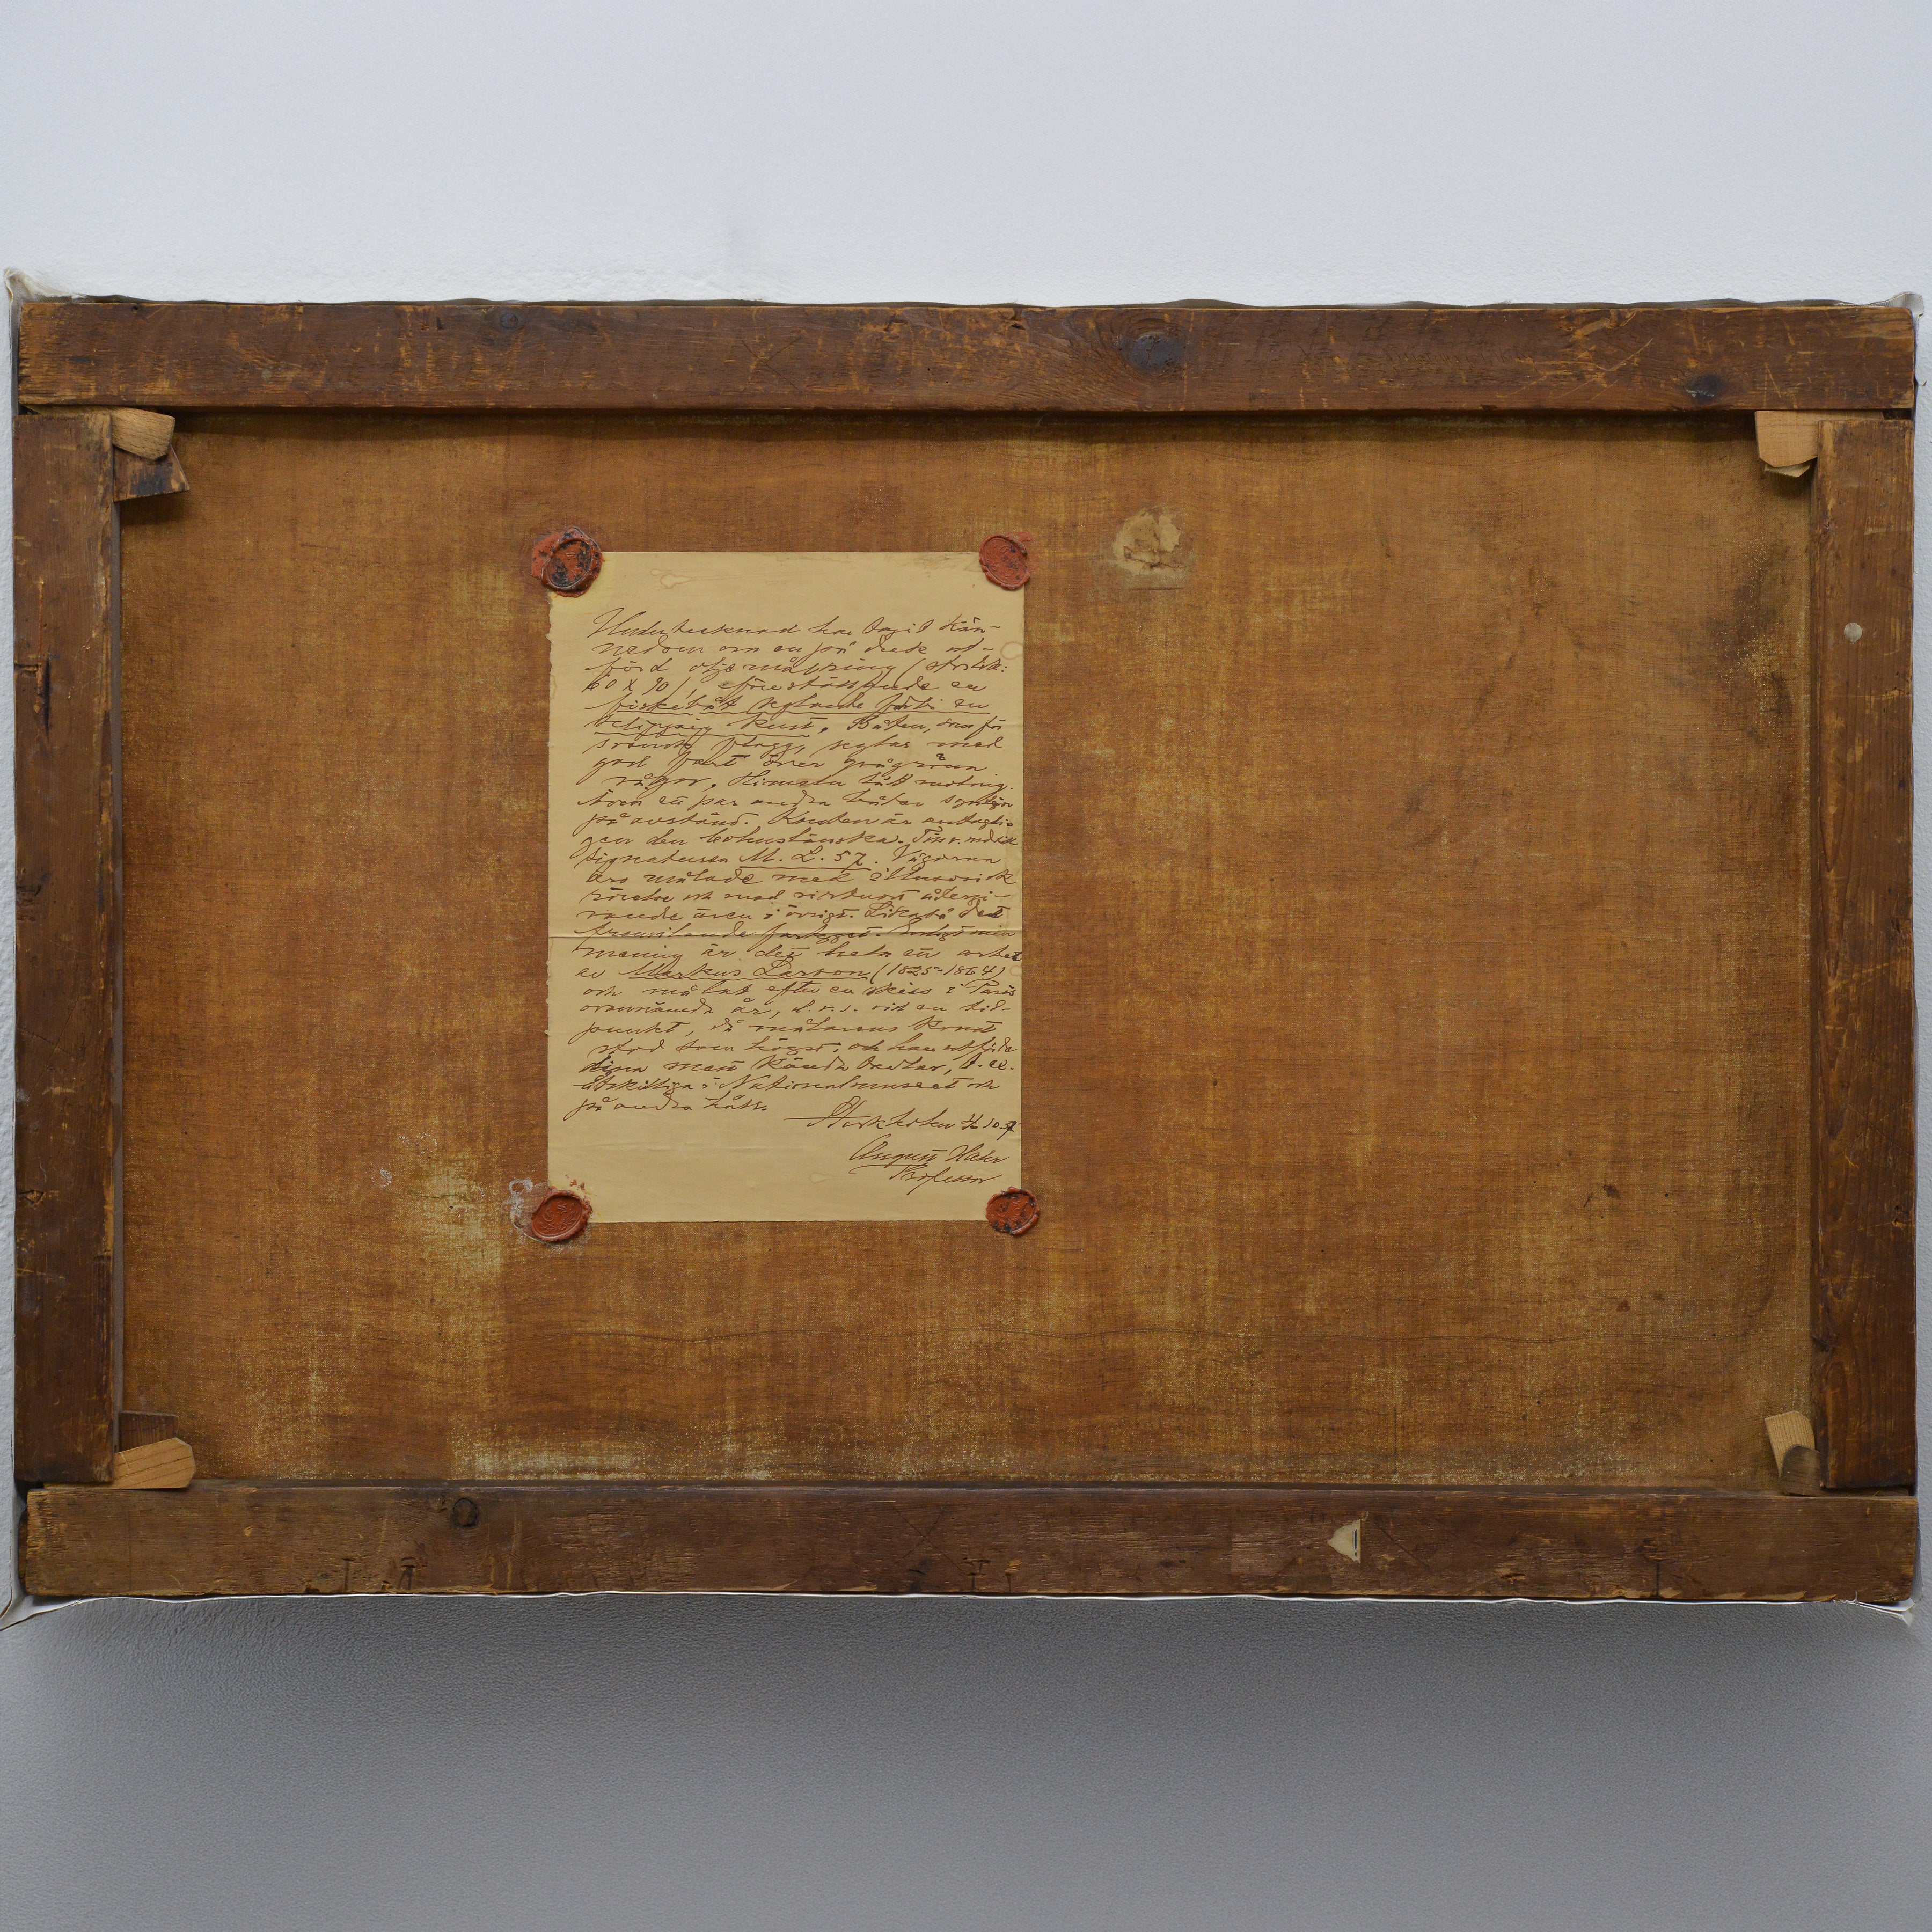 Undertecknad har tagit kän-
nedom om en på duk ut-
förd oljemålning (storlek:
60 x 90), föreställande en
fiskebåt seglande förbi en
klippig kust. Båten, som för
svensk flagg, seglar med
god fart över grågröna
vågor. Himeln lätt molnig.
Även ett par andra båtar synliga
på avstånd. Kusten är antagli-
gen den bohuslänska.
signaturen M. L. 57. Vågorna
äro målade med
rörelse och med virtuost återgi-
vande även i övrigt. Likaså det
framilande fartyget. Enligt min
mening är det hela ett arbete
av Markus Larson (1825-1864)
och målat efter en skiss i Paris
ovannämnda år, d. v. s. vid en tid-
punkt, då målarens konst
stod som högst, och han utförde
sina mest kända tavlor, t. ex.
åtskilliga i Nationalmuseet och
på andra håll.
Stockholm 4/10 57
August Hahr
Professor